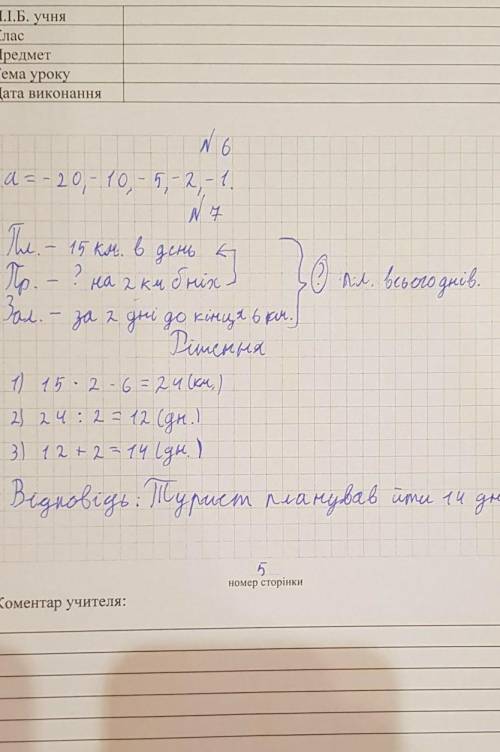 І.І.Б. учня
Клас
Предмет
Тема уроку
Дата виконання
№ 6
а = - 20, - 10, - 5, - 2, - 1.
№ 7
Пл. – 15 км. в день
Пр. – ? на 2 км б ніх
Зал. – за 2 дні до кінця 6 км.
? пл. всього днів.
Рішення
1) 15 · 2 - 6 = 24 (км.)
2) 24 : 2 = 12 (дн.)
3) 12 + 2 = 14 (дн.)
Відповідь: Турист планував йти 14 дн
5
номер сторінки
Коментар учителя: